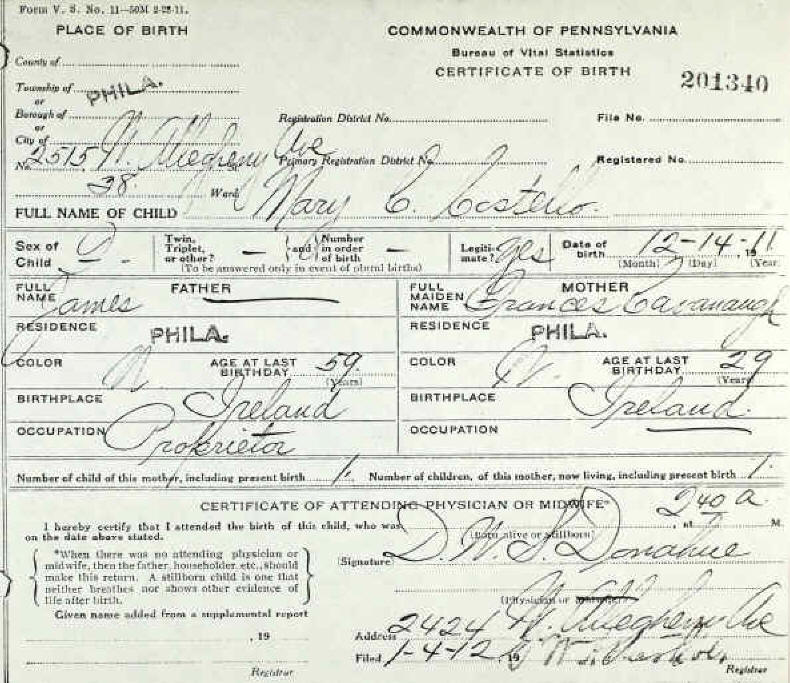 Form V. S. No. 11—50M 2-28-11.
PLACE OF BIRTH
COMMONWEALTH OF PENNSYLVANIA
Bureau of Vital Statistics
CERTIFICATE OF BIRTH
201340
County of
Township of PHILA.
or
Borough of
Registration District No.
File No.
or
City of
No. 2515 W. Allegheny Ave
Primary Registration District No.
Registered No.
38. Ward
FULL NAME OF CHILD Mary C. Costello.
Sex of Child
Twin, Triplet, or other? —
and
Number in order of birth —
(To be answered only in event of plural births)
Legitimate? yes
Date of birth 12-14-11, 19
(Month) (Day) (Year)
FULL NAME FATHER
James
FULL MAIDEN NAME MOTHER
Frances Cavanaugh
RESIDENCE PHILA.
RESIDENCE PHILA.
COLOR W AGE AT LAST BIRTHDAY 59.
(Years)
COLOR W. AGE AT LAST BIRTHDAY 29
(Years)
BIRTHPLACE Ireland
BIRTHPLACE Ireland.
OCCUPATION Proprietor
OCCUPATION
Number of child of this mother, including present birth 1. Number of children, of this mother, now living, including present birth 1.
CERTIFICATE OF ATTENDING PHYSICIAN OR MIDWIFE*
I hereby certify that I attended the birth of this child, who was, at 2 40 a. M.
(Born alive or stillborn)
on the date above stated.
*When there was no attending physician or
midwife, then the father, householder, etc., should
make this return. A stillborn child is one that
neither breathes nor shows other evidence of
life after birth.
(Signature) D. W. S. Donahue
(Physician or midwife)
Given name added from a supplemental report
, 19
Registrar
Address 2424 W. Allegheny Ave
Filed 1-4-12, 19
Registrar